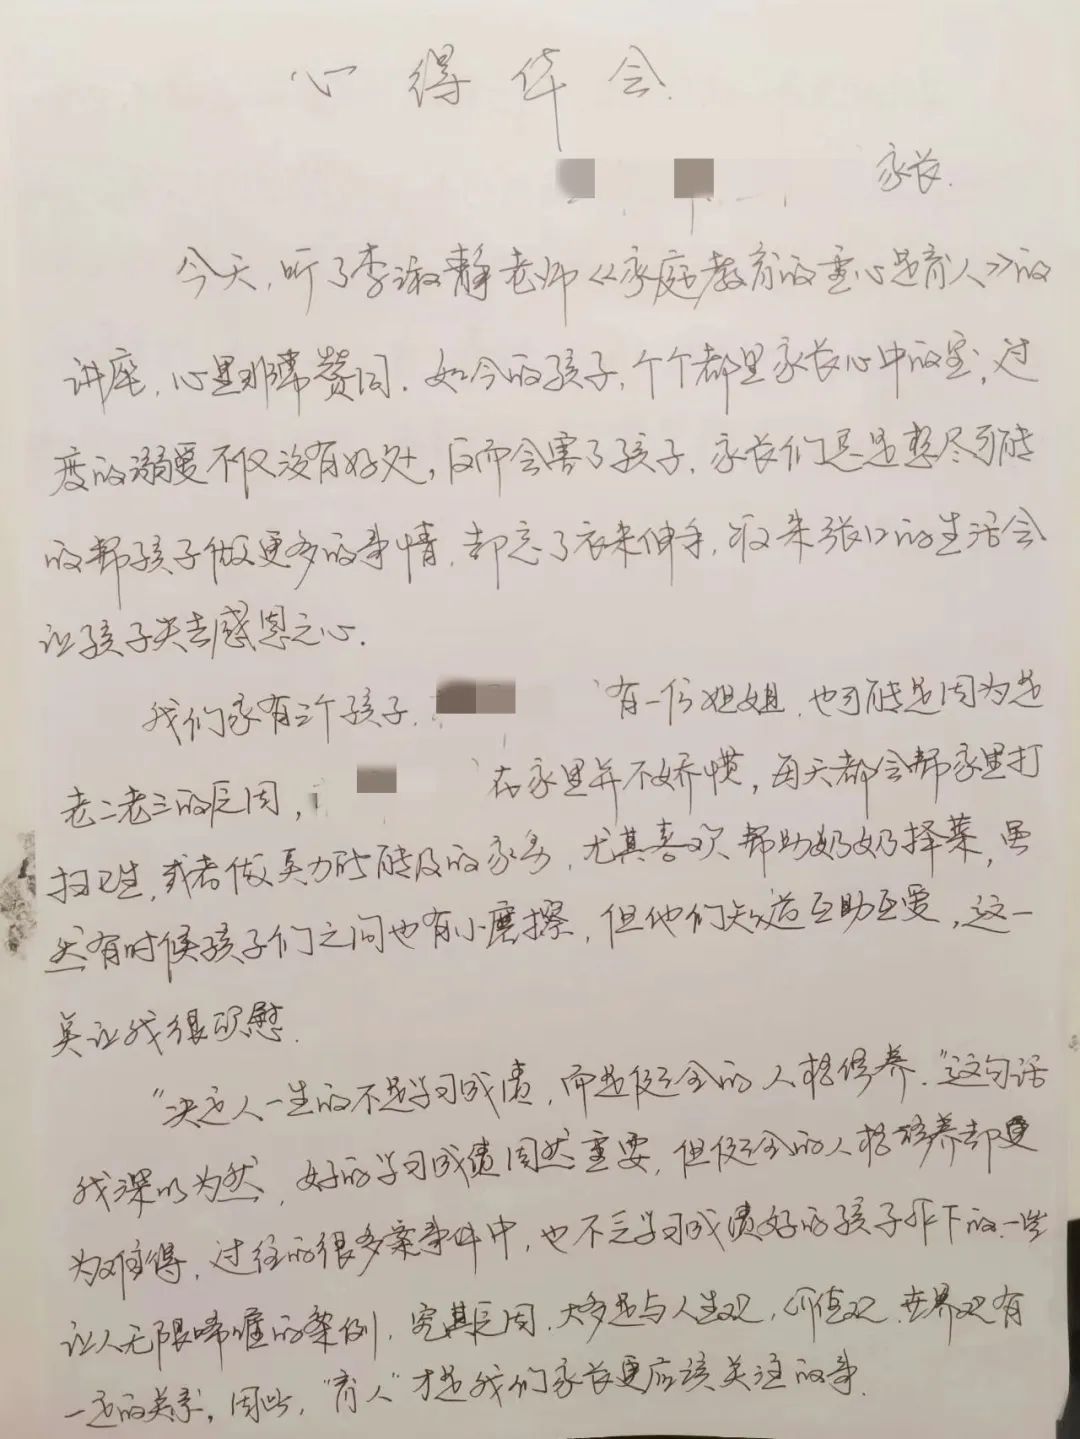 心得体会.
家长.
今天,听了李淑静老师《家庭教育的重心是育人》的
讲座,心里非常赞同.如今的孩子,个个都是家长心中的宝,过
度的溺爱不仅没有好处,反而会害了孩子.家长们总是想尽可能
的帮孩子做更多的事情,却忘了衣来伸手,饭来张口的生活会
让孩子失去感恩之心.
我们家有三个孩子. 有一份姐姐,也可能是因为是
老二老三的原因, 在家里并不娇惯,每天都会帮家里打
扫卫生,或者做其力所能及的家务,尤其喜欢帮助奶奶择菜,虽
然有时候孩子们之间也有小磨擦,但他们知道互助互爱,这一
点让我很欣慰.
“决定人一生的不是学习成绩,而是健全的人格修养.”这句话
我深以为然,好的学习成绩固然重要,但健全的人格培养却更
为难得.过往的很多案事件中,也不乏学习成绩好的孩子犯下的一些
让人无限唏嘘的案例,究其原因,大多是与人生观,价值观,世界观有
一定的关系,因此,“育人”才是我们家长更应该关注的事.